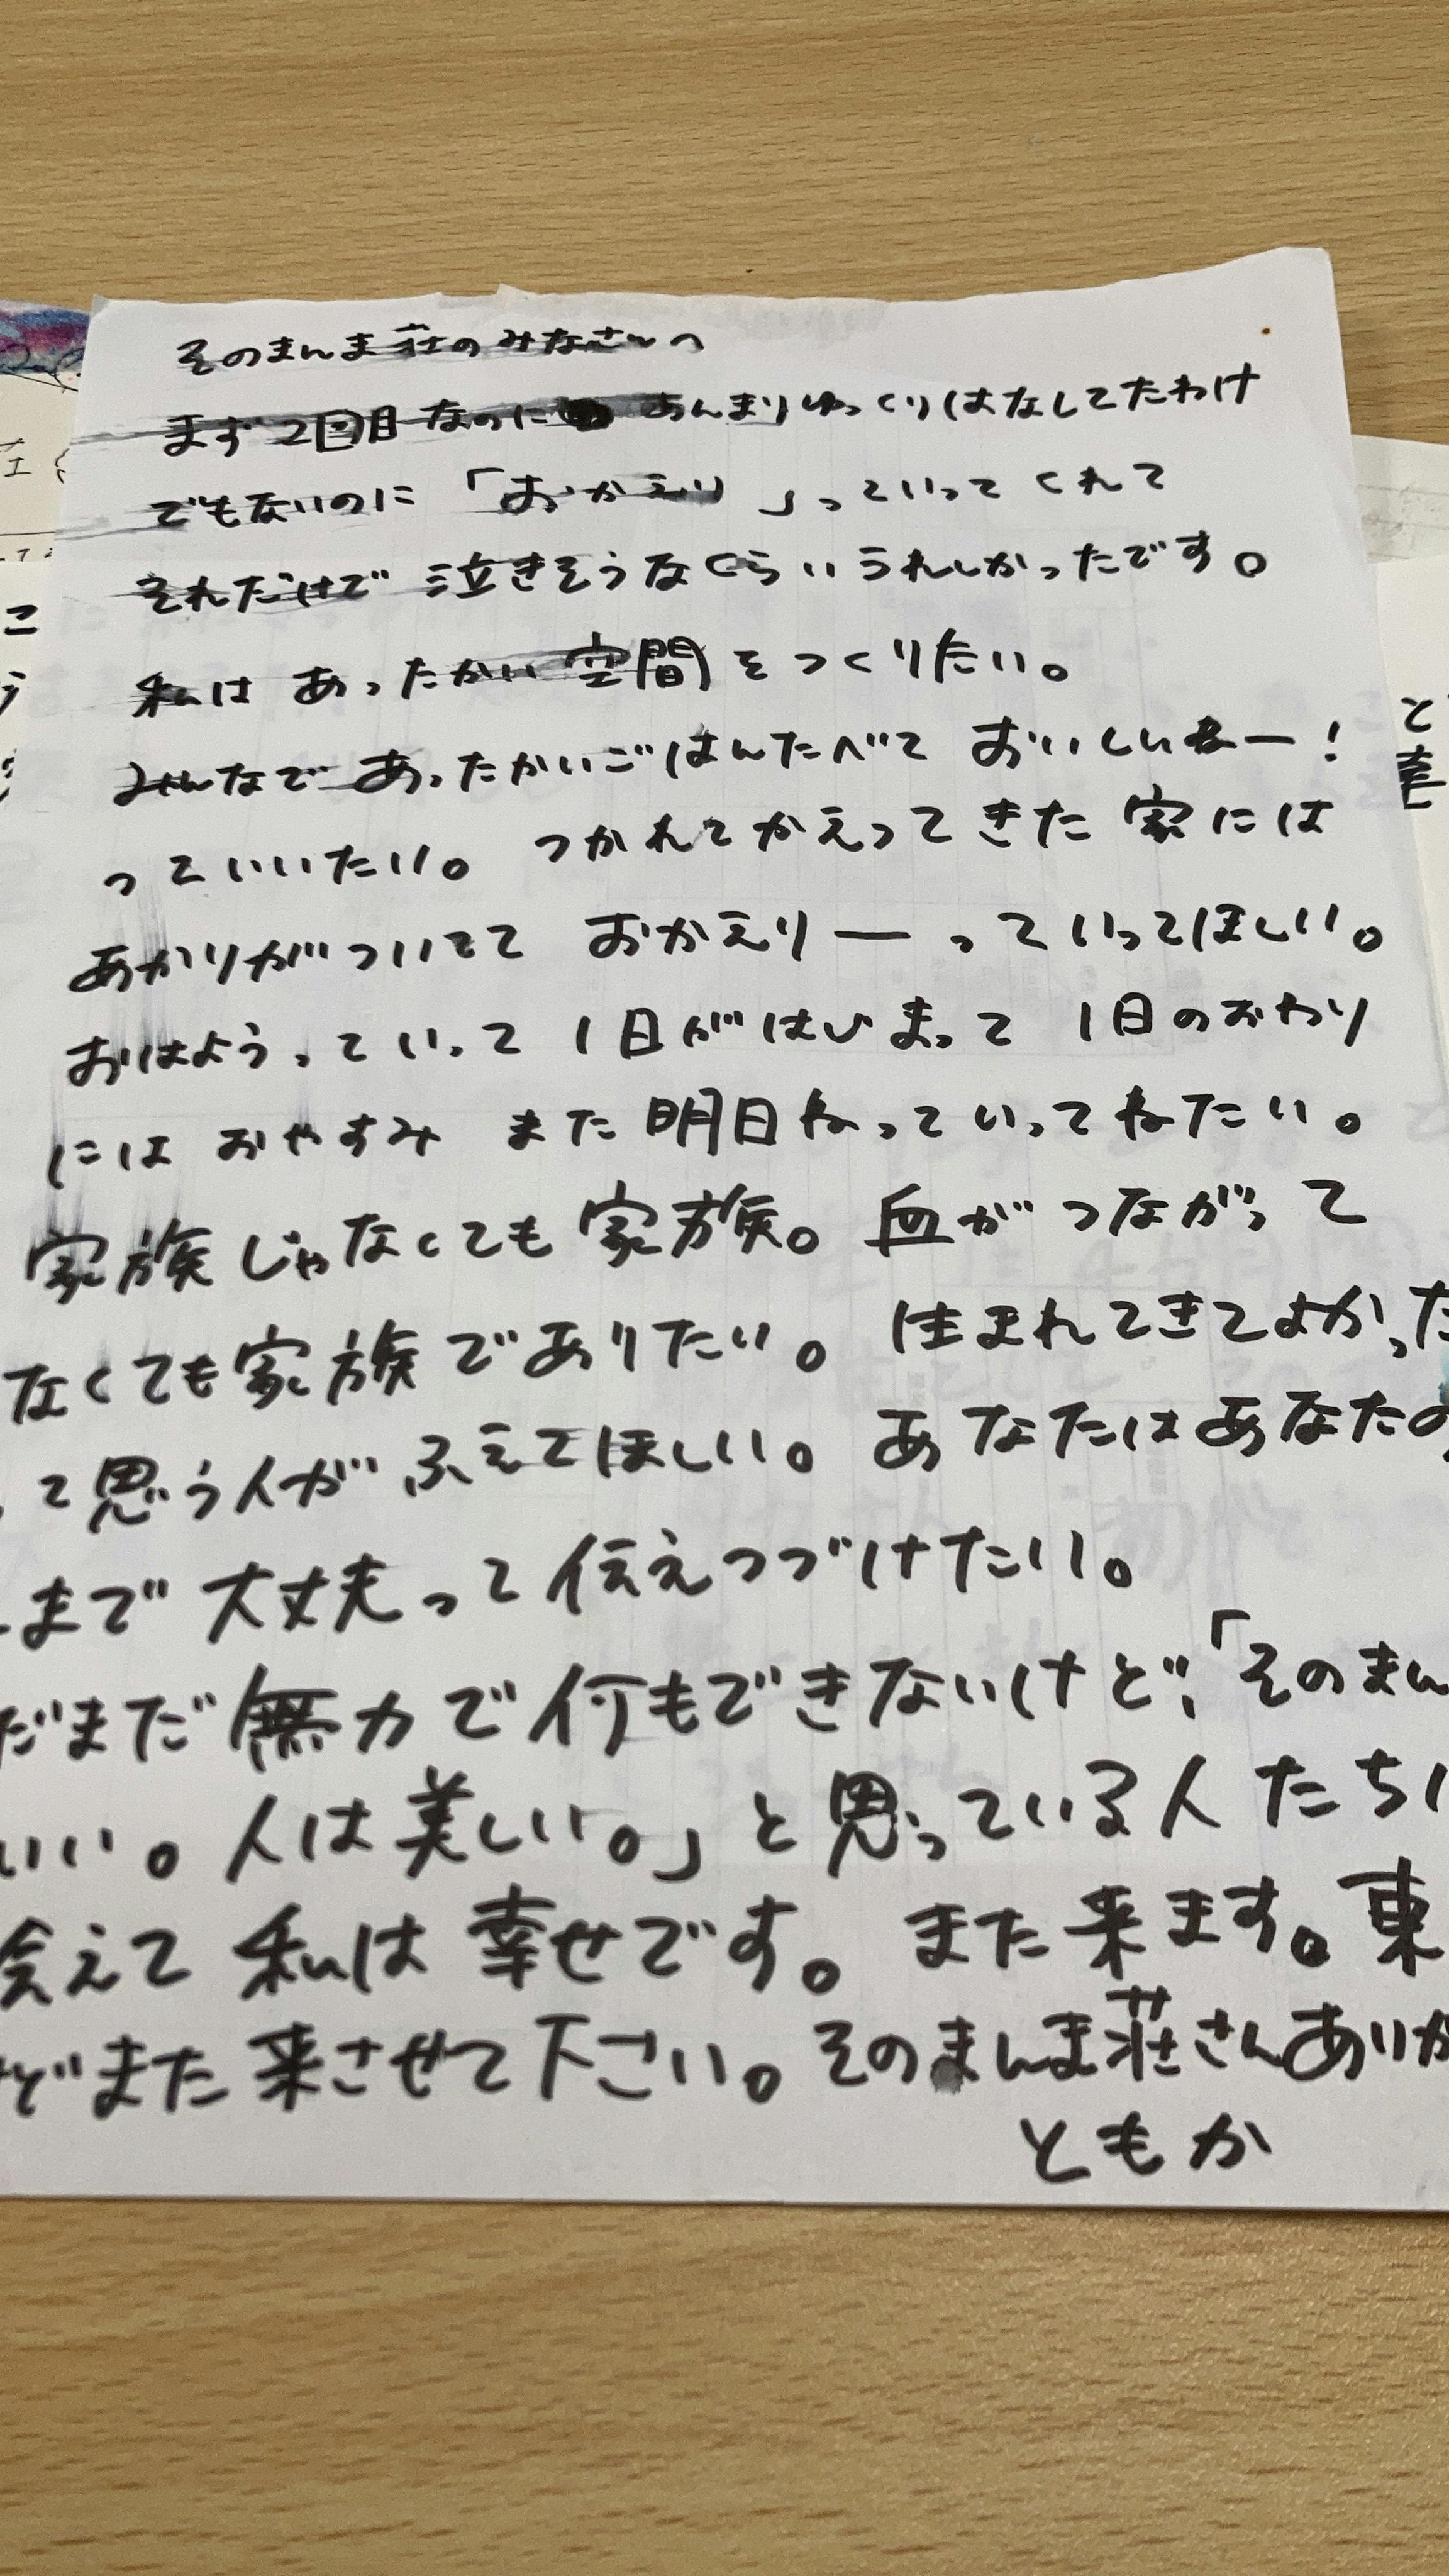 そのまんま荘のみなさんへ
まず2回目なのに あんまりゆっくりはなしてたわけ
でもないのに 「おかえり」っていってくれて
それだけで 泣きそうなくらいうれしかったです。
私は あったかい空間をつくりたい。
みんなであったかいごはんたべて おいしいねー!
っていいたい。 つかれてかえってきた家には
あかりがついてて おかえりーっていってほしい。
おはようっていって 1日がはじまって 1日のおわり
には おやすみ また明日ねっていってねたい。
家族じゃなくても家族。 血がつながって
なくても家族でありたい。 生まれてきてよかった
って思う人がふえてほしい。 あなたはあなたの
まで大丈夫って伝えつづけたい。
だまだ無力で何もできないけど、「そのまん
いい。人は美しい。」と思っている人たちに
会えて 私は幸せです。 また来ます。東
どまた来させて下さい。そのまんま荘さんありが
ともか